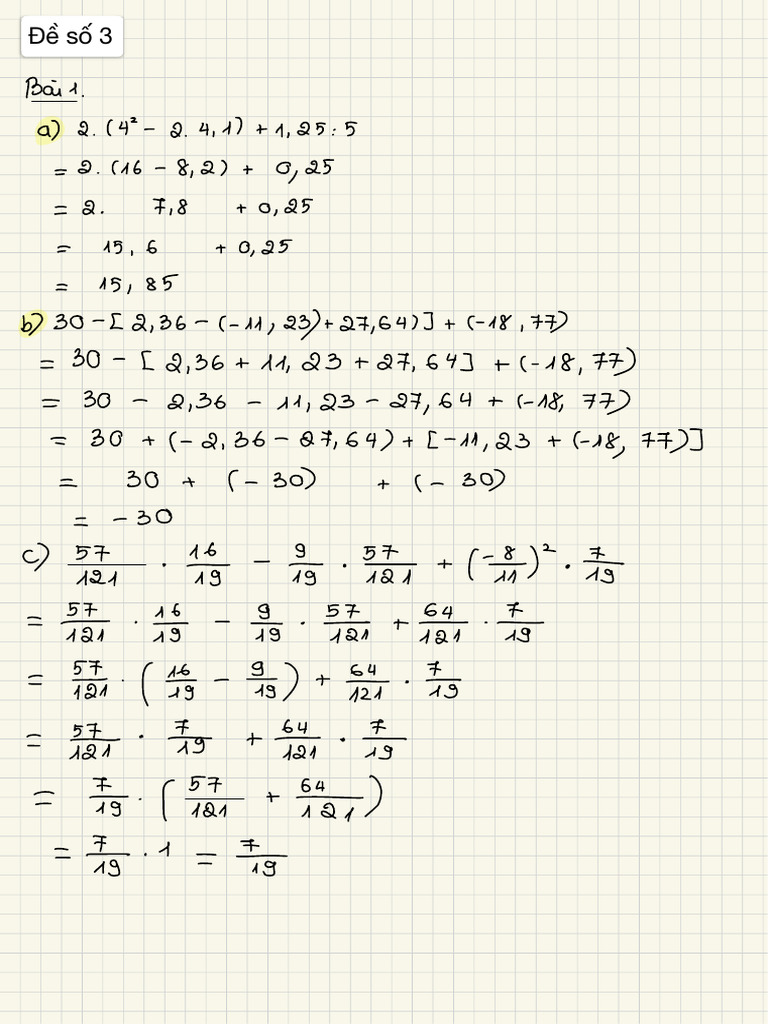 Đề số 3
Bài 1.
a) 2.(4² - 2.4,1) + 1,25:5
= 2.(16 - 8,2) + 0,25
= 2. 7,8 + 0,25
= 15,6 + 0,25
= 15,85
b) 30 - [2,36 - (-11,23)+27,64)] + (-18,77)
= 30 - [2,36 + 11,23 + 27,64] + (-18,77)
= 30 - 2,36 - 11,23 - 27,64 + (-18,77)
= 30 + (-2,36 - 27,64) + [-11,23 + (-18,77)]
= 30 + (-30) + (-30)
= -30
c) 57/121 . 16/19 - 9/19 . 57/121 + (-8/11)² . 7/19
= 57/121 . 16/19 - 9/19 . 57/121 + 64/121 . 7/19
= 57/121 . (16/19 - 9/19) + 64/121 . 7/19
= 57/121 . 7/19 + 64/121 . 7/19
= 7/19 . (57/121 + 64/121)
= 7/19 . 1 = 7/19